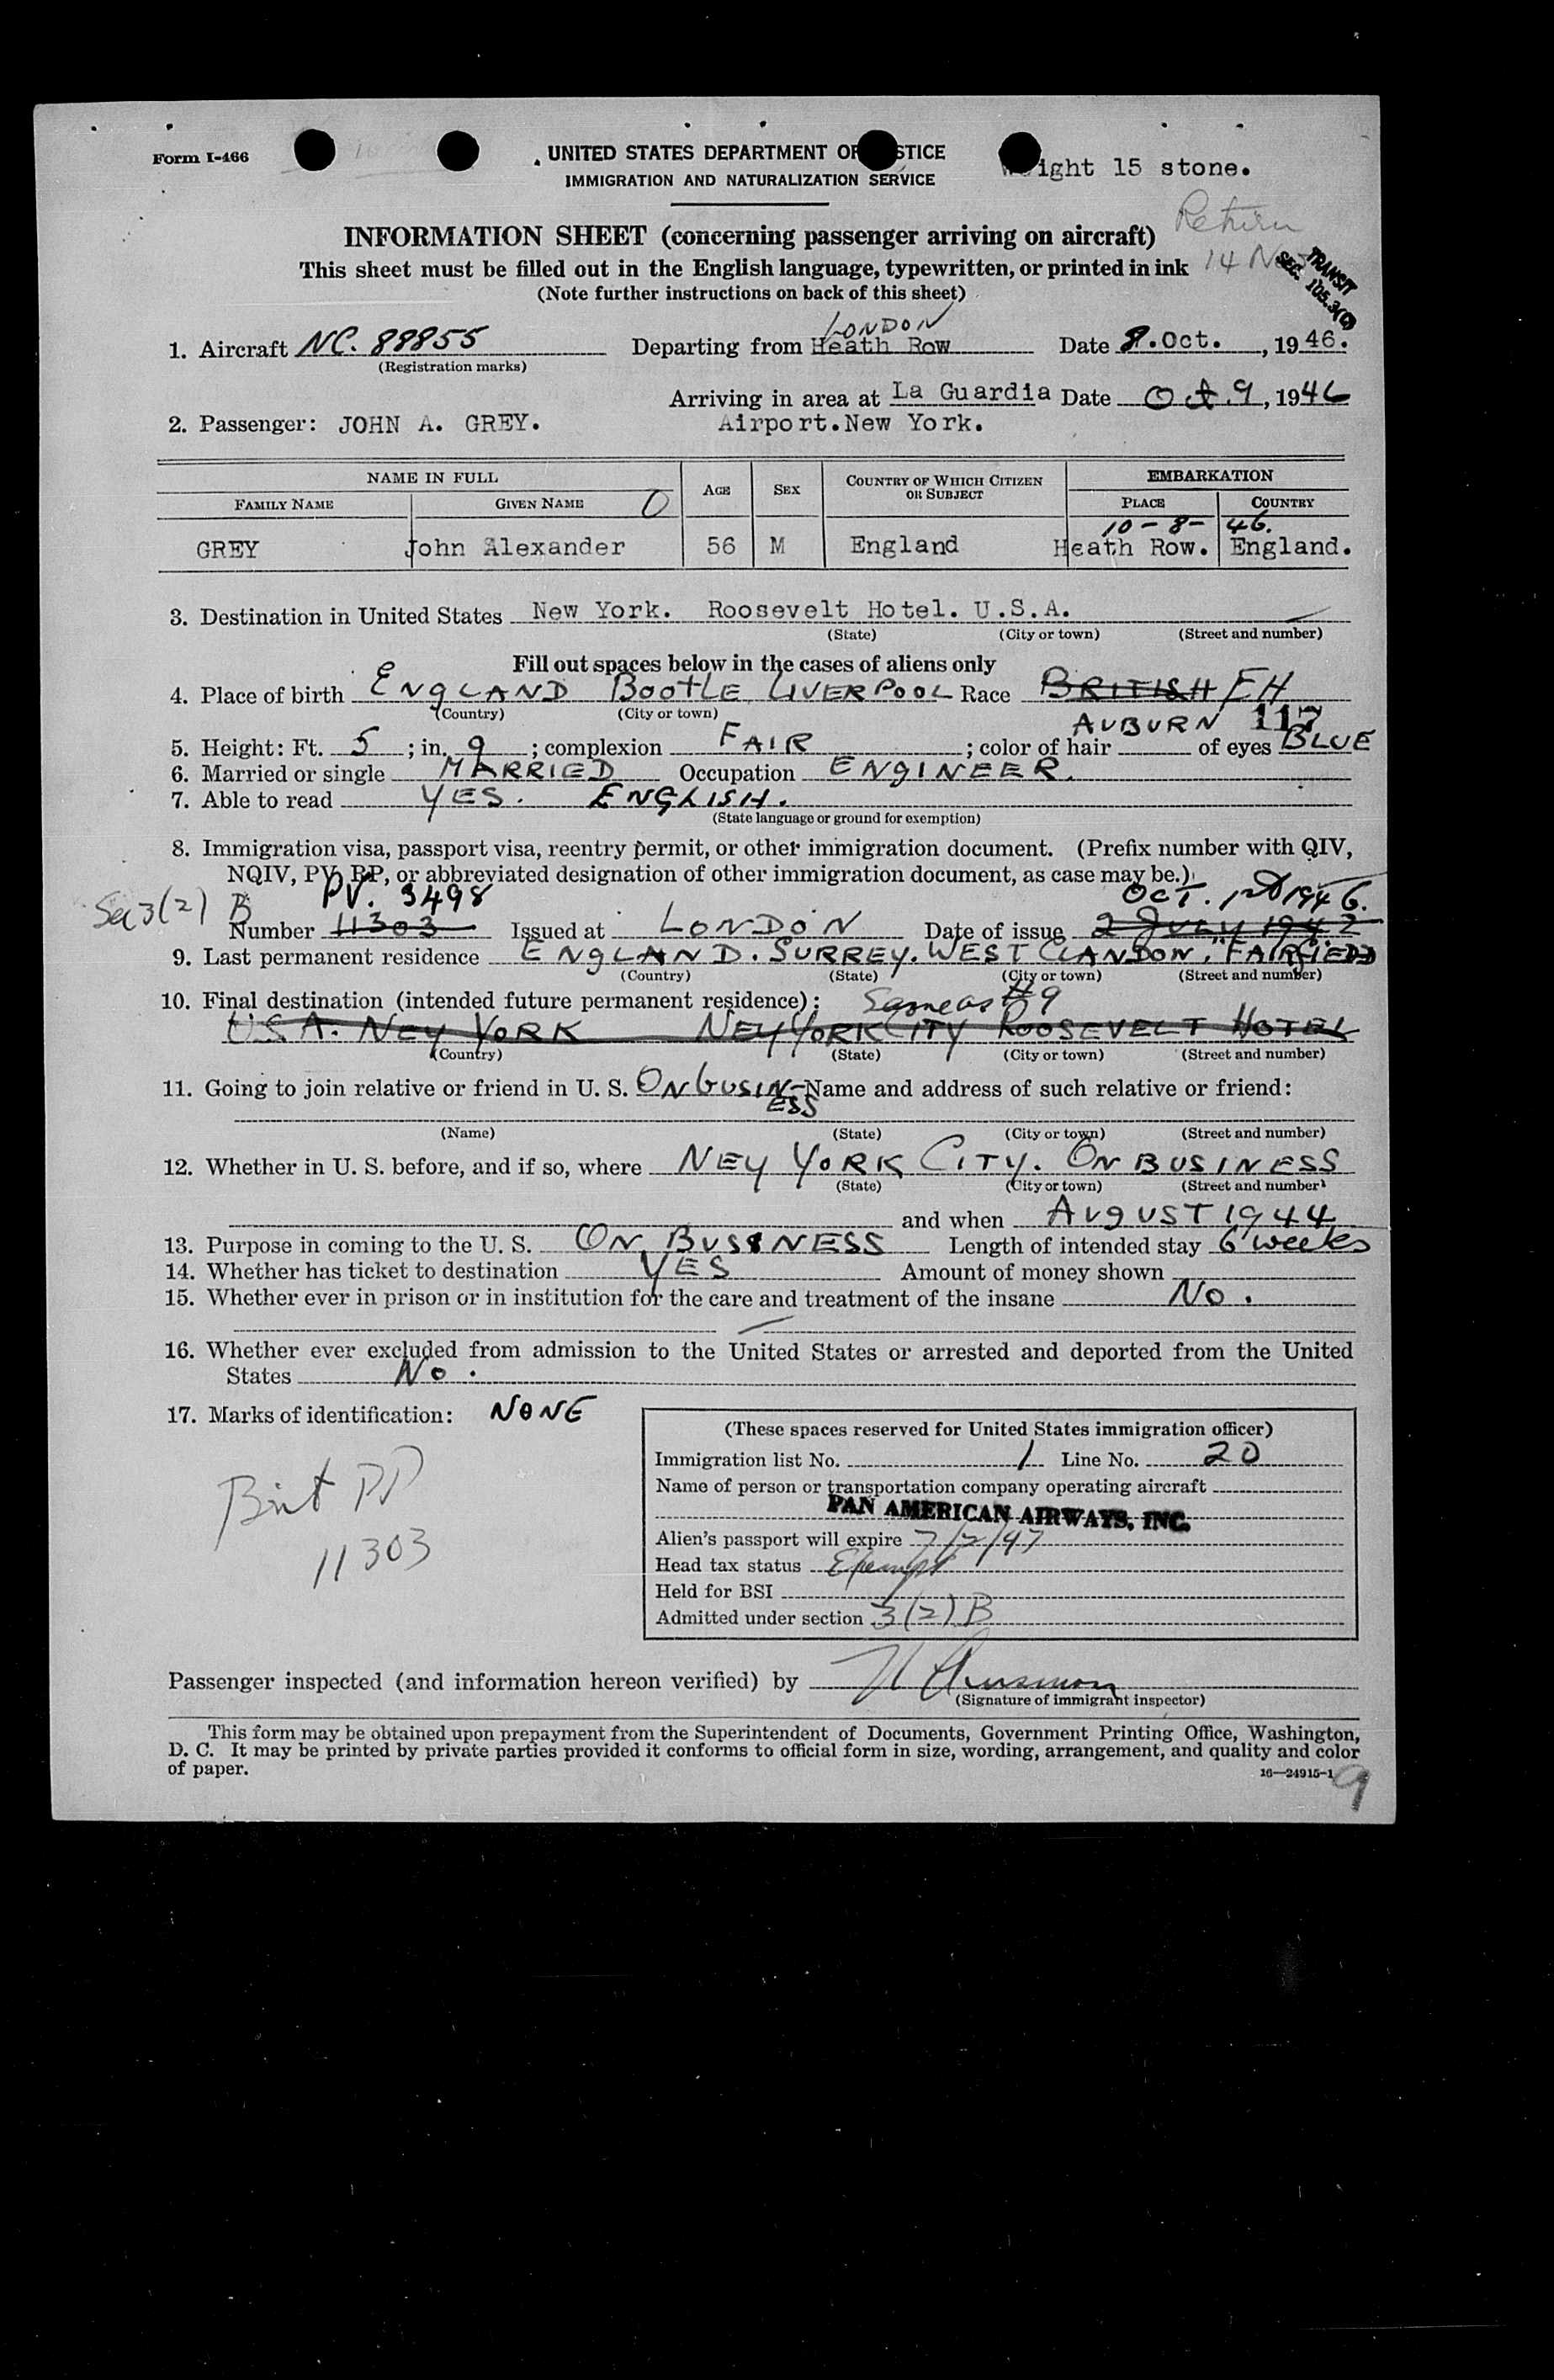 Form I-466
UNITED STATES DEPARTMENT OF STICE
ight 15 stone.
IMMIGRATION AND NATURALIZATION SERVICE
Return
14 Nov
INFORMATION SHEET (concerning passenger arriving on aircraft)
TRANSIT
SEC. 105.3(C)
This sheet must be filled out in the English language, typewritten, or printed in ink
(Note further instructions on back of this sheet)
LONDON
1. Aircraft NC. 88855 Departing from Heath Row Date 8. Oct. , 19 46.
(Registration marks)
Arriving in area at La Guardia Date Oct. 9, 1946
2. Passenger: JOHN A. GREY. Airport. New York.
NAME IN FULL AGE SEX COUNTRY OF WHICH CITIZEN OR SUBJECT EMBARKATION
FAMILY NAME GIVEN NAME 0 PLACE COUNTRY
10-8-46.
GREY John Alexander 56 M England Heath Row. England.
3. Destination in United States New York. Roosevelt Hotel. U.S.A.
(State) (City or town) (Street and number)
Fill out spaces below in the cases of aliens only
4. Place of birth ENGLAND BOOTLE LIVERPOOL Race BRITISH EH
(Country) (City or town)
AUBURN 117
5. Height: Ft. 5 ; in. 9 ; complexion FAIR ; color of hair of eyes BLUE
6. Married or single MARRIED Occupation ENGINEER.
7. Able to read YES. ENGLISH.
(State language or ground for exemption)
8. Immigration visa, passport visa, reentry permit, or other immigration document. (Prefix number with QIV,
NQIV, PV, RP, or abbreviated designation of other immigration document, as case may be.)
Sec 3(2) B PV. 3498 OCT. 1946.
Number 11303 Issued at LONDON Date of issue 2 JULY 1942
9. Last permanent residence ENGLAND. SURREY. WEST CLANDON, "FAIRFIELD"
(Country) (State) (City or town) (Street and number)
10. Final destination (intended future permanent residence): Same as #9
U.S.A. NEY YORK NEY YORK CITY ROOSEVELT HOTEL
(Country) (State) (City or town) (Street and number)
11. Going to join relative or friend in U. S. ON BUSIN-ESS Name and address of such relative or friend:
(Name) (State) (City or town) (Street and number)
12. Whether in U. S. before, and if so, where NEY YORK CITY. ON BUSINESS
(State) (City or town) (Street and number)
and when AUGUST 1944
13. Purpose in coming to the U. S. ON BUSINESS Length of intended stay 6 weeks
14. Whether has ticket to destination YES Amount of money shown
15. Whether ever in prison or in institution for the care and treatment of the insane No.
16. Whether ever excluded from admission to the United States or arrested and deported from the United
States No.
17. Marks of identification: NONE
(These spaces reserved for United States immigration officer)
Immigration list No. 1 Line No. 20
Name of person or transportation company operating aircraft
PAN AMERICAN AIRWAYS, INC.
Brit PP
11303
Alien's passport will expire 7/2/47
Head tax status Exempt
Held for BSI
Admitted under section 3(2) B
Passenger inspected (and information hereon verified) by
(Signature of immigrant inspector)
This form may be obtained upon prepayment from the Superintendent of Documents, Government Printing Office, Washington,
D. C. It may be printed by private parties provided it conforms to official form in size, wording, arrangement, and quality and color
of paper.
16—24915-1
9